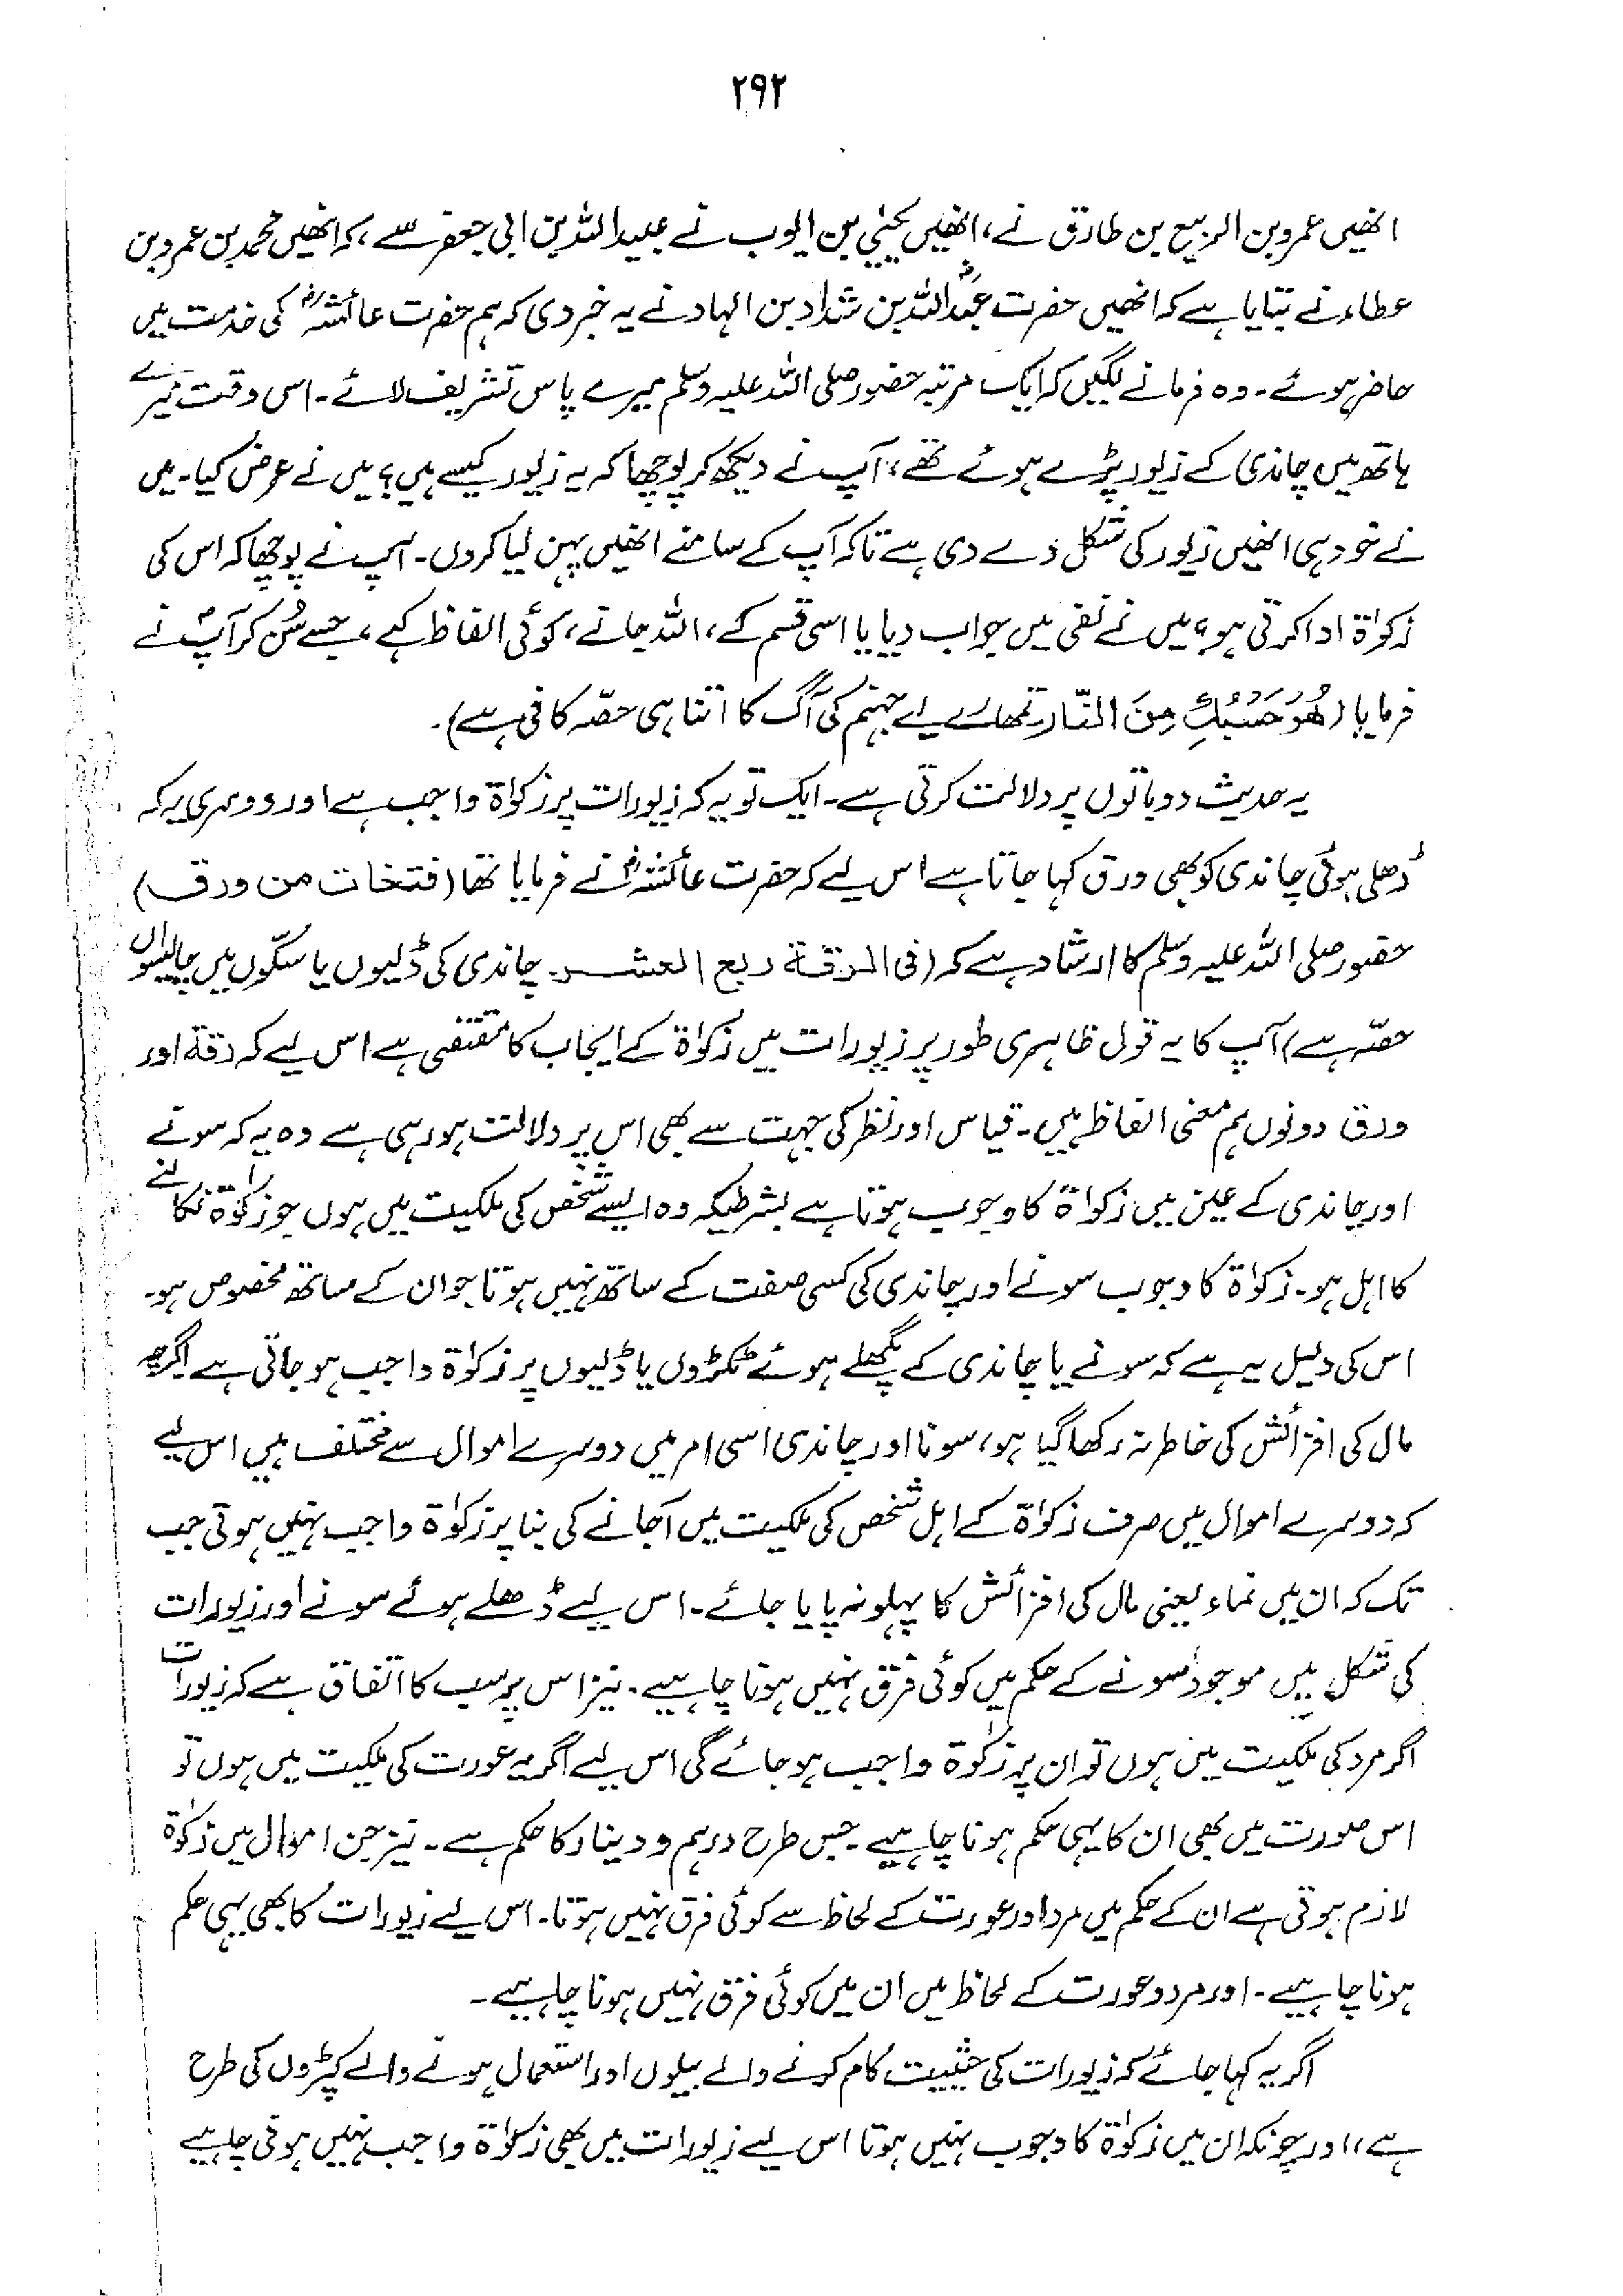 ۲۹۲
انھیں عمرو بن الربیع بن طارق نے، انھیں یحییٰ بن ایوب نے عبیداللہ بن ابی جعفر سے، کہ انھیں محمد بن عمرو بن
عطاء نے بتایا ہے کہ انھیں حضرت عبداللہؓ بن شداد بن الہاد نے یہ خبر دی کہ ہم حضرت عائشہؓ کی خدمت میں
حاضر ہوئے۔ وہ فرمانے لگیں کہ ایک مرتبہ حضور صلی اللہ علیہ وسلم میرے پاس تشریف لائے۔ اسی وقت میرے
ہاتھ میں چاندی کے زیور پڑے ہوئے تھے، آپ نے دیکھ کر پوچھا کہ یہ زیور کیسے ہیں؟ میں نے عرض کیا۔ میں
نے خود ہی انھیں زیور کی شکل دے دی ہے تاکہ آپ کے سامنے انھیں پہن لیا کروں۔ آپ نے پوچھا کہ اس کی
زکوٰۃ ادا کرتی ہو؟ میں نے نفی میں جواب دیا یا اسی قسم کے، اللہ جانے، کوئی الفاظ کہے، جسے سُن کر آپؐ نے
فرمایا (هُوَ حَسْبُكِ مِنَ النَّار تمھارے لیے جہنم کی آگ کا اتنا ہی حصّہ کافی ہے)۔
یہ حدیث دو باتوں پر دلالت کرتی ہے۔ ایک تو یہ کہ زیورات پر زکوٰۃ واجب ہے اور دوسری یہ کہ
ڈھلی ہوئی چاندی کو بھی ورق کہا جاتا ہے اس لیے کہ حضرت عائشہؓ نے فرمایا تھا (فتخات من ورق)
حضور صلی اللہ علیہ وسلم کا ارشاد ہے کہ (فی الرقة ربع العشر۔ چاندی کی ڈلیوں یا سکّوں میں چالیسواں
حصّہ ہے) آپ کا یہ قول ظاہری طور پر زیورات میں زکوٰۃ کے ایجاب کا مقتضی ہے اس لیے کہ رقۃ اور
ورق دونوں ہم معنی الفاظ ہیں۔ قیاس اور نظر کی جہت سے بھی اس پر دلالت ہو رہی ہے وہ یہ کہ سونے
اور چاندی کے عین میں زکواۃ کا وجوب ہوتا ہے بشرطیکہ وہ ایسے شخص کی ملکیت میں ہوں جو زکوٰۃ نکالنے
کا اہل ہو۔ زکوٰۃ کا وجوب سونے اور چاندی کی کسی صفت کے ساتھ نہیں ہوتا جو ان کے ساتھ مخصوص ہو۔
اس کی دلیل یہ ہے کہ سونے یا چاندی کے پگھلے ہوئے ٹکڑوں یا ڈلیوں پر زکوٰۃ واجب ہو جاتی ہے اگرچہ
مال کی افزائش کی خاطر نہ رکھا گیا ہو، سونا اور چاندی اسی امر میں دوسرے اموال سے مختلف ہیں اس لیے
کہ دوسرے اموال میں صرف زکوٰۃ کے اہل شخص کی ملکیت میں آجانے کی بنا پر زکوٰۃ واجب نہیں ہوتی جب
تک کہ ان میں نماء یعنی مال کی افزائش کا پہلو نہ پایا جائے۔ اس لیے ڈھلے ہوئے سونے اور زیورات
کی شکل میں موجود سونے کے حکم میں کوئی فرق نہیں ہونا چاہیے۔ نیز اس پر سب کا اتفاق ہے کہ زیورات
اگر مرد کی ملکیت میں ہوں تو ان پر زکوٰۃ واجب ہو جائے گی اس لیے اگر یہ عورت کی ملکیت میں ہوں تو
اس صورت میں بھی ان کا یہی حکم ہونا چاہیے۔ جس طرح درہم و دینار کا حکم ہے۔ نیز جن اموال میں زکوٰۃ
لازم ہوتی ہے ان کے حکم میں مرد اور عورت کے لحاظ سے کوئی فرق نہیں ہوتا۔ اس لیے زیورات کا بھی یہی حکم
ہونا چاہیے۔ اور مرد و عورت کے لحاظ میں ان میں کوئی فرق نہیں ہونا چاہیے۔
اگر یہ کہا جائے کہ زیورات کی حیثیت کام کرنے والے بیلوں اور استعمال ہونے والے کپڑوں کی طرح
ہے،، اور چونکہ ان میں زکوٰۃ کا وجوب نہیں ہوتا اس لیے زیورات میں بھی زکوٰۃ واجب نہیں ہونی چاہیے